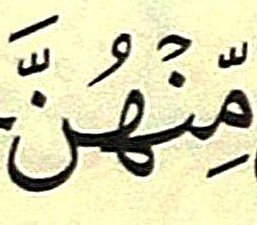 مِّنْهُنَّ